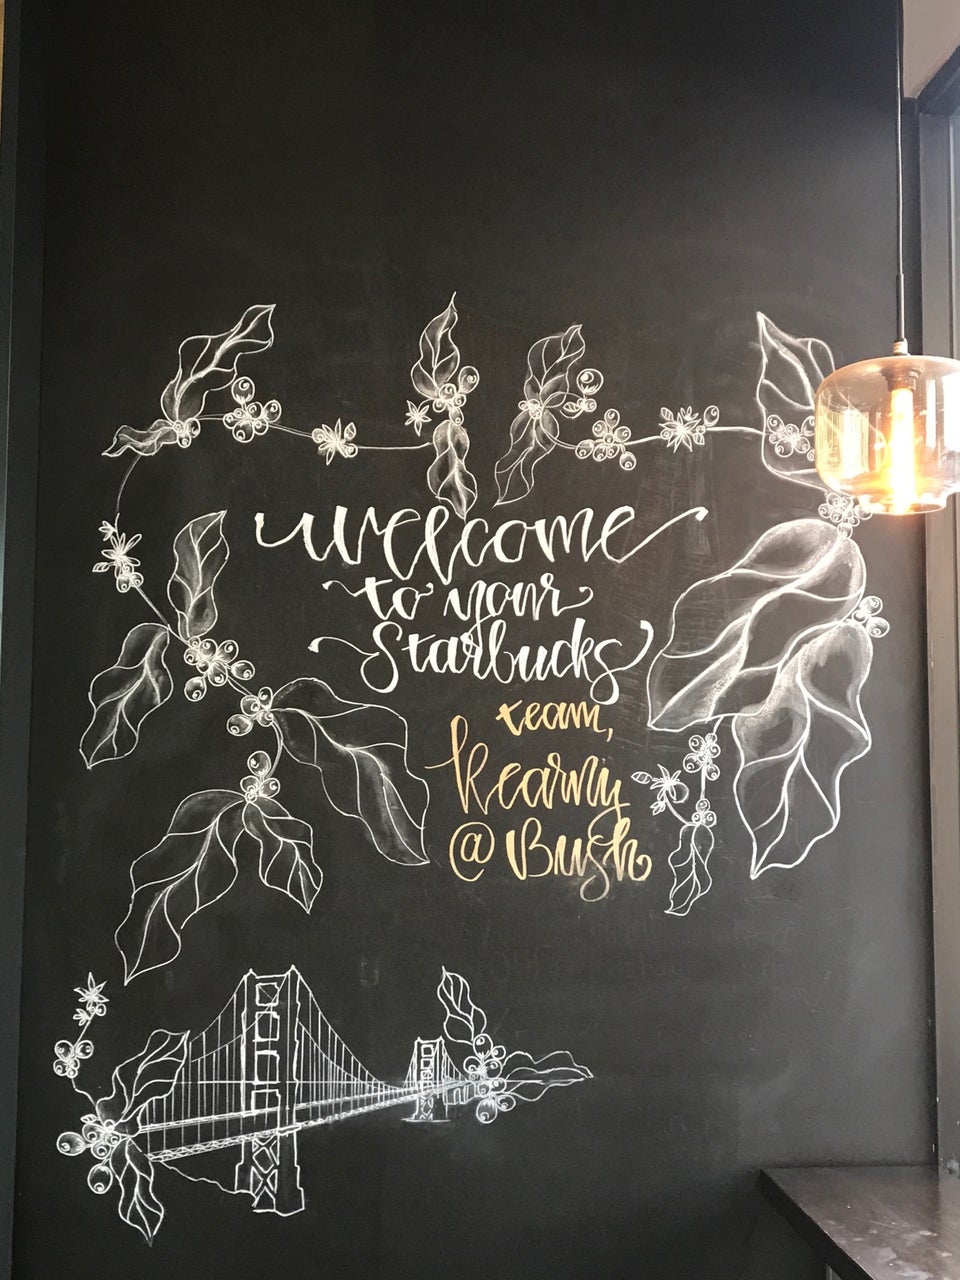 welcome
to your
Starbucks
team,
Kearny
@ Bush